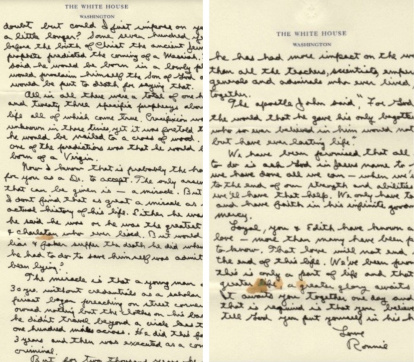 THE WHITE HOUSE
WASHINGTON
doubt but could I just impose on yo
a little longer? Some seven hundred y
before the birth of Christ the ancient Jew
prophets predicted the coming of a Messiah.
said he would be born in a lowly p
would proclaim himself the Son of God
would be put to death for saying that.
All in all there was a total of one h
and twenty three specific prophesys about
life all of which came true. Crucifixion w
unknown in those times, yet it was foretold t
he would be nailed to a cross of wood.
one of the predictions was that he would b
born of a Virgin.
Now I know that is probably the ha
for you as a Dr. to accept. The only answ
that can be given is - a miracle. But
I don't find that as great a miracle as
actual history of his life. Either he was
he said he was or he was the greatest
Charlatan who ever lived. But would
liar & faker suffer the death he did when
he had to do to save himself was admit
been lying?
The miracle is that a young man
30 yrs. without credentials as a scholar
priest began preaching on street corner
owned nothing but the clothes on his bac
he didn't travel beyond a circle less t
one hundred miles across. He did this fo
3 years and then was executed as a com
criminal.
But for two thousand years he
THE WHITE HOUSE
WASHINGTON
he has had more impact on the wo
than all the teachers, scientists, emper
generals and admirals who ever lived
together.
The apostle John said, "For God
the world that he gave his only begotte
who so ever believed in him would not
but have everlasting life".
We have been promised that all
to do is ask God in Jesus name to
we have done all we can - when we'
to the end of our strength and abilities
we'll have that help. We only have to
and have faith in his infinite goodn
mercy.
Loyal, you & Edith have known a
love - more than many have been able
to know. That love will not end
the end of this life. We've been prom
this is only a part of life and that
greater glory awaits
It awaits you together one day and
that is required is that you believe
tell God you put yourself in his h
Love
Ronnie